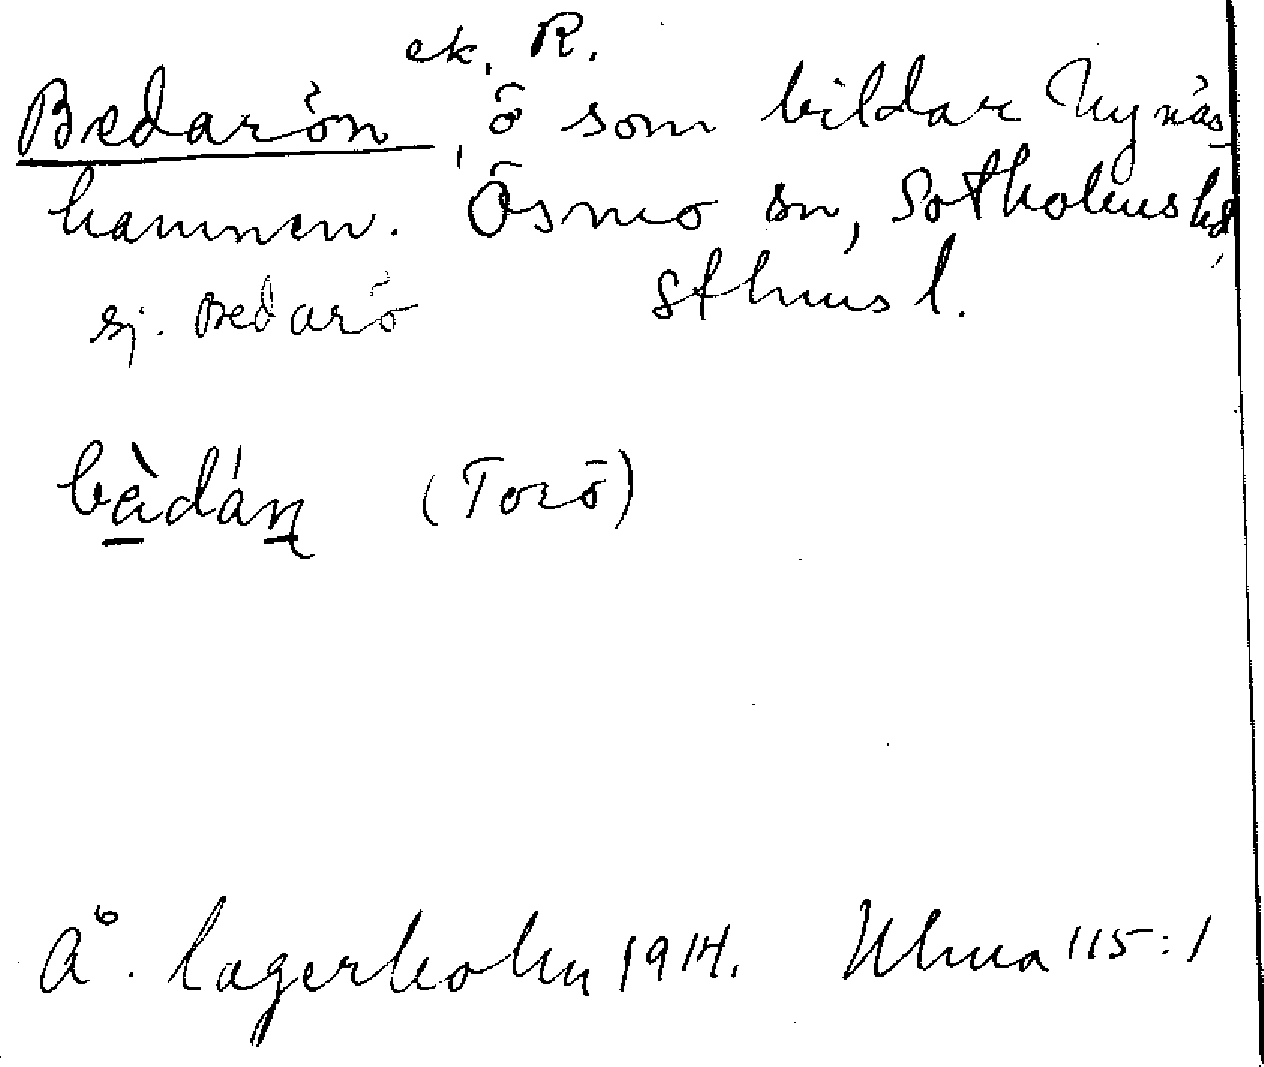 ek. R.
Bedarön, ö som bildar Nynäs
hamnen. Ösmo sn, Sotholms hd,
sthms l.
sj. Bedarö
bàdán (Torö)
Å. Lagerholm 1914. Ulma 115:1